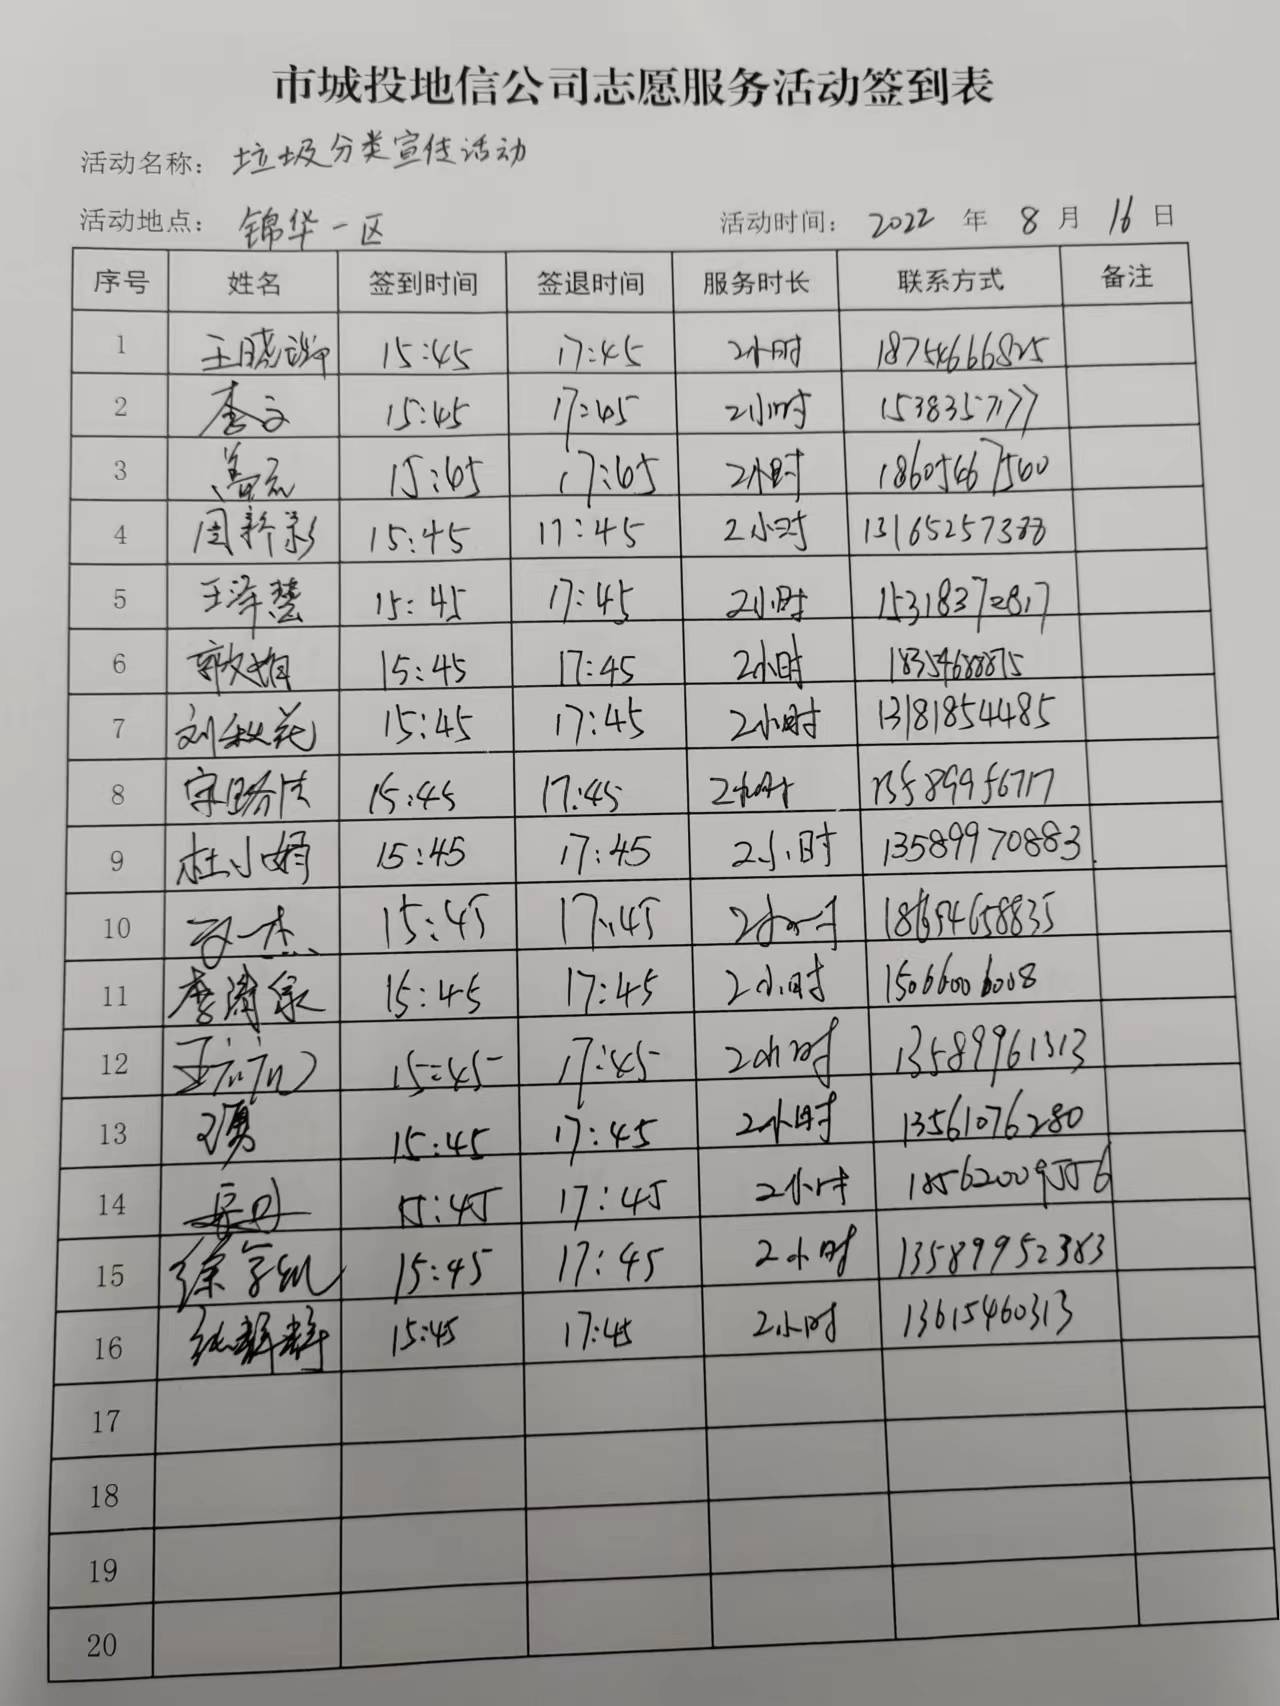 市城投地信公司志愿服务活动签到表
活动名称： 垃圾分类宣传活动
活动地点： 锦华一区 活动时间： 2022 年 8 月 16 日
序号 姓名 签到时间 签退时间 服务时长 联系方式 备注
1 15:45 17:45 2小时 18754666825
2 李文 15:45 17:45 2小时
3 盖元 15:45 17:45 2小时 18605467500
4 周新彩 15:45 17:45 2小时 13165257388
5 王泽慧 15:45 17:45 2小时 15318372817
6 郭文娟 15:45 17:45 2小时 18354688875
7 刘秋花 15:45 17:45 2小时 13181854485
8 15:45 17:45 2小时 13589956717
9 杜小娟 15:45 17:45 2小时 13589970883
10 15:45 17:45 2小时 18654658835
11 15:45 17:45 2小时 15066006008
12 15:45 17:45 2小时 13589961313
13 15:45 17:45 2小时 13561076280
14 15:45 17:45 2小时 18562009556
15 15:45 17:45 2小时 13589952383
16 15:45 17:45 2小时 13615460313
17
18
19
20